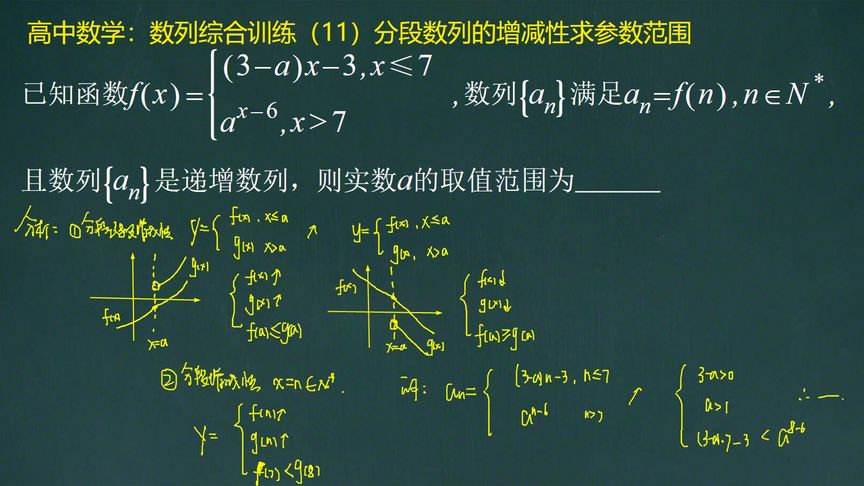 高中数学：数列综合训练（11）分段数列的增减性求参数范围
已知函数f(x)={(3-a)x-3,x≤7
a^{x-6},x>7
,数列{a_n}满足a_n=f(n),n∈N*,
且数列{a_n}是递增数列，则实数a的取值范围为______
分析：①分段 y={f(x),x≤a g(x) x>a ↗ y={f(x),x≤a g(x),x>a
g(x) f(x) x=a {f(x)↑ g(x)↑ f(a)≤g(a) f(x) x=a g(x) {f(x)↓ g(x)↓ f(a)≥g(a)
②分段 x=n∈N*.
y={f(n)↑ g(n)↑ f(7)<g(8)
a_n={(3-a)n-3, n≤7 a^{n-6} n>7 ↗ {3-a>0 a>1 (3-a)·7-3<a^{8-6} ∴